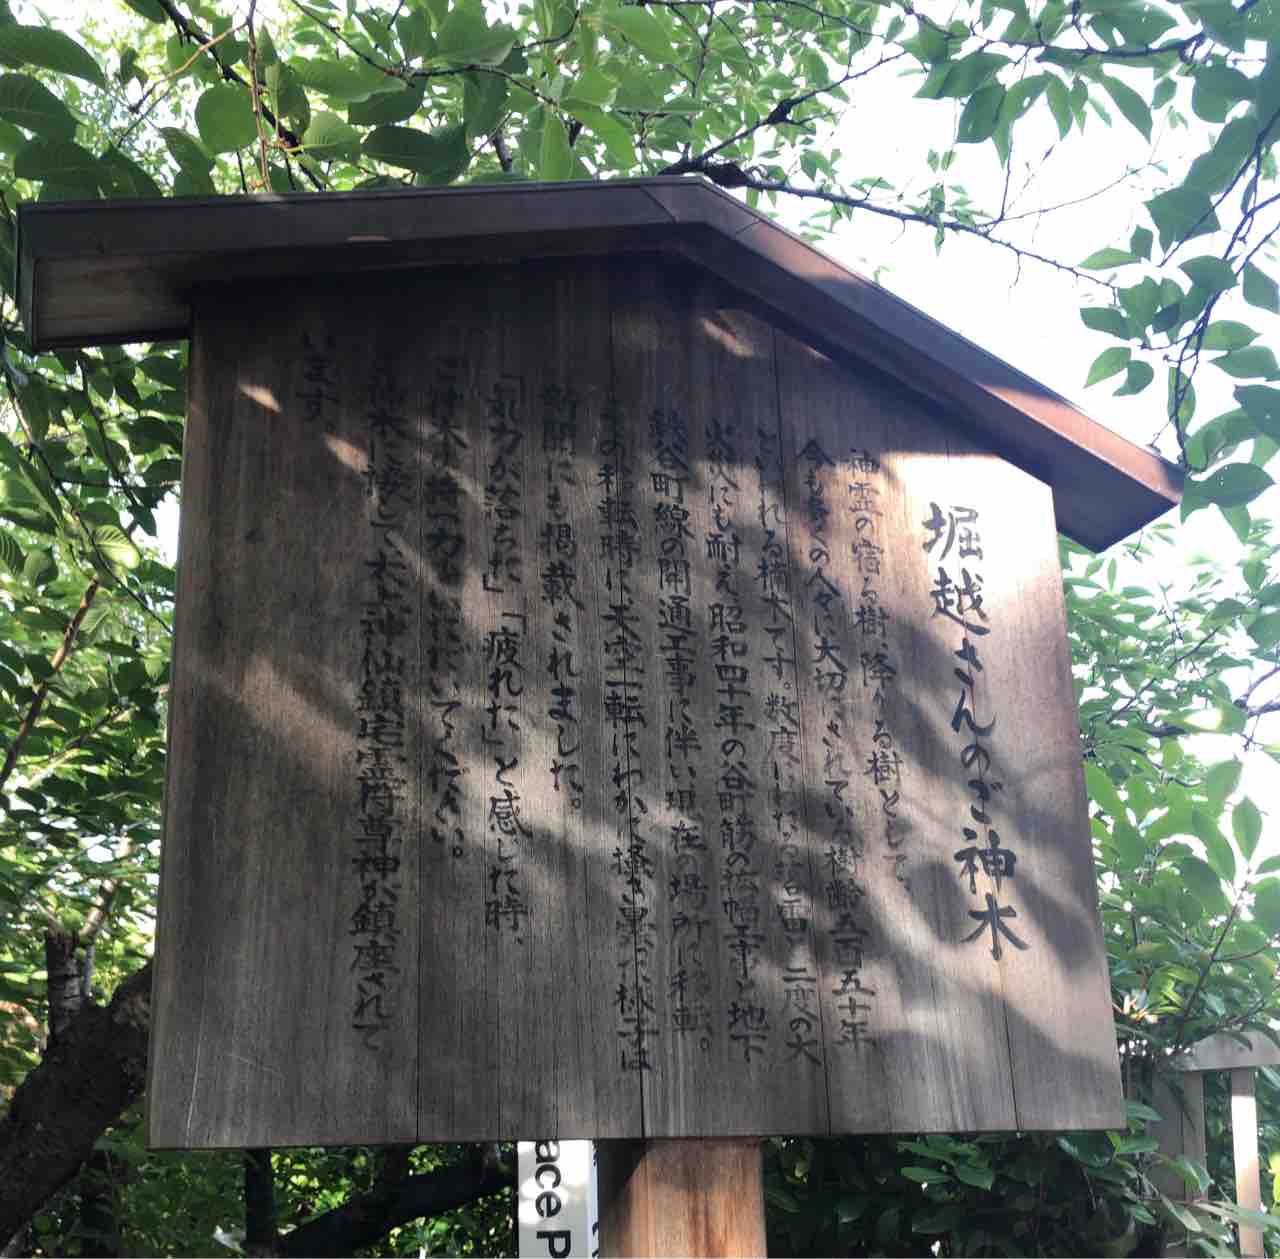 堀越さんのご神木
神霊の宿る樹、降りる樹として、
今も多くの人々に大切にされている樹齢五百五十年
といわれる楠木です。数度にわたる落雷と二度の大
火災にも耐え昭和四十年の谷町筋の拡幅工事と地下
鉄谷町線の開通工事に伴い現在の場所に移転。
その移転時に天空一転にわかに掻き曇った様子は
新聞にも掲載されました。
「気力が落ちた」「疲れた」と感じた時、
ご神木の神力をいただいてください。
ご神木に接して太上神仙鎮宅霊符尊神が鎮座されて
います。
ace P